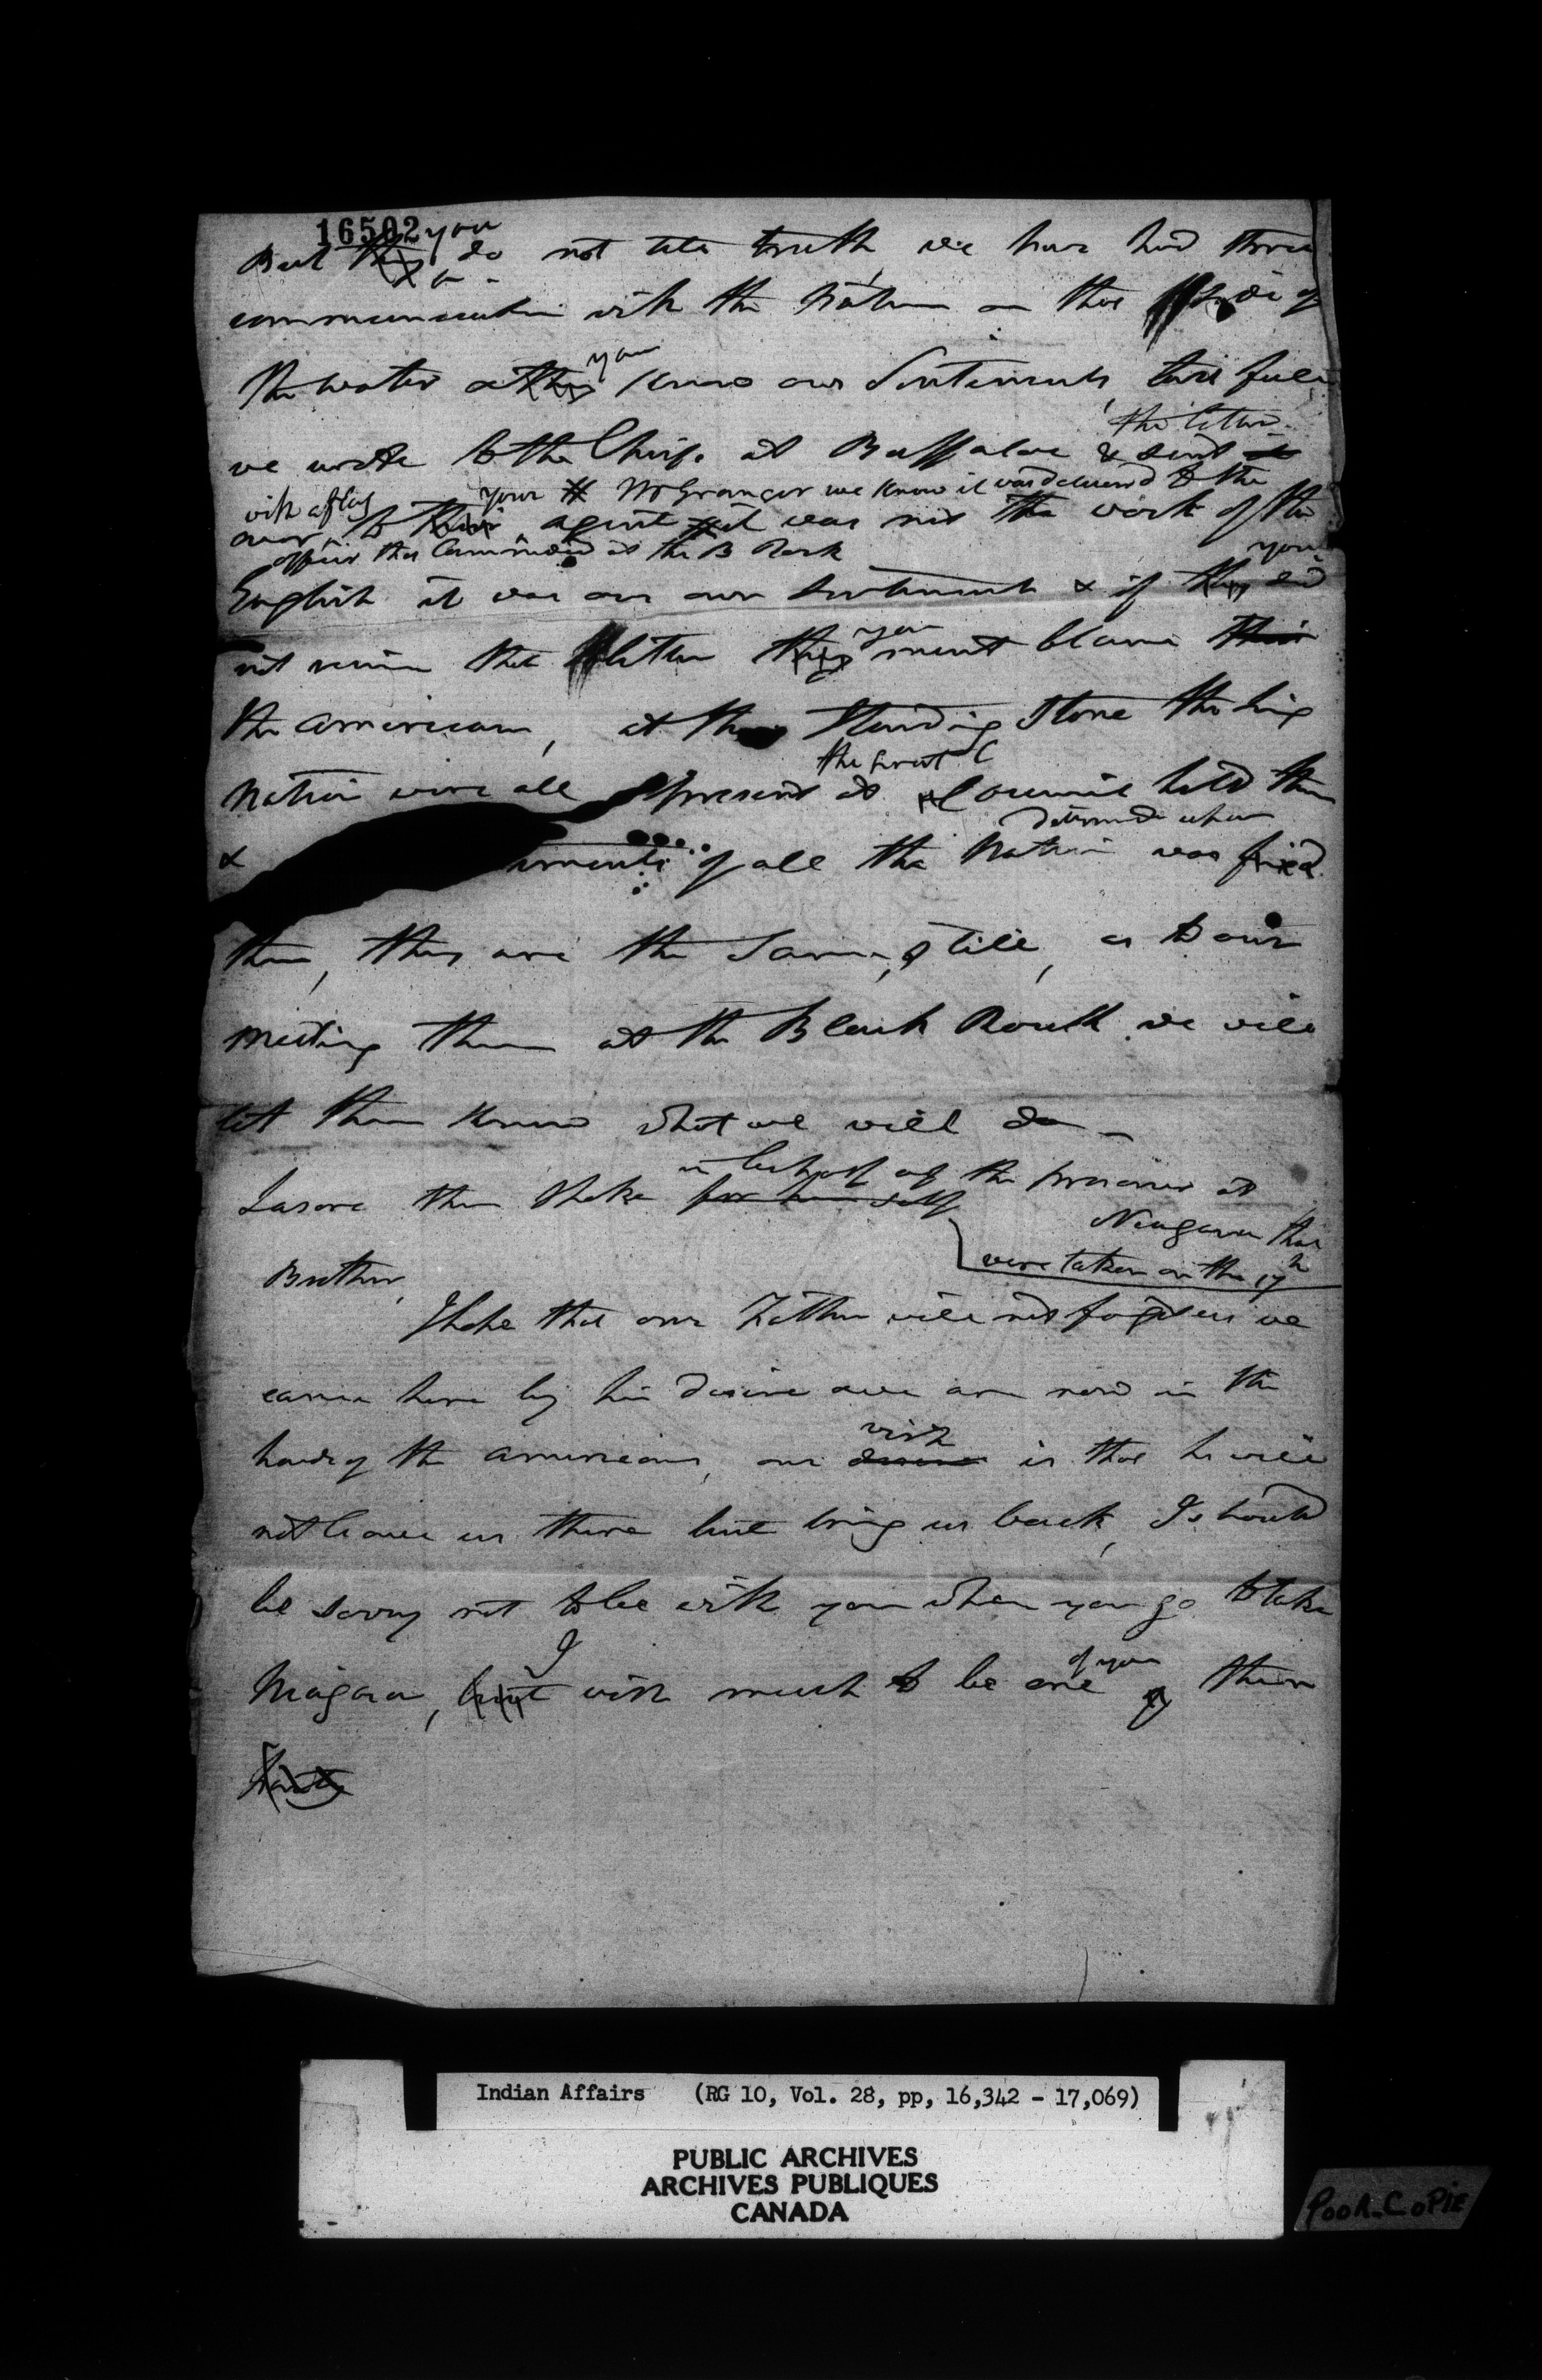 16502
But they you do not tell truth we have had three
communication with the Nation on that side of
the water & they you know our Sentiments, last fall
we wrote to the Chiefs at Buffaloe & sent it the letter
over with a flag to their your agent Mr Granger we know it was delivered to the
officer that Commanded at the B Rock it was not the work of the
English it was our own Sentiments & if they you did
not receive that letter they you must blame their
the Americans, at the Standing Stone the
Nation were all present at the great Council held there
& ments of all the Nation was fixed determined upon
then, they are the Same, still, as to our
meeting them at the Black Rock we will
let them know what we will do
then spoke for himself in behalf of the prisoners at
Niagara that
were taken on the 17th
Brother,
I hope that our Father will not forget us we
came here by his desire & we are now in the
hands of the Americans, our desire wish is that he will
not leave us there but bring us back, I should
be sorry not to be with you when you go to take
Niagara, but I wish much to be one of you then
Indian Affairs (RG 10, Vol. 28, pp, 16,342 - 17,069)
PUBLIC ARCHIVES
ARCHIVES PUBLIQUES
CANADA
POOR COPIE